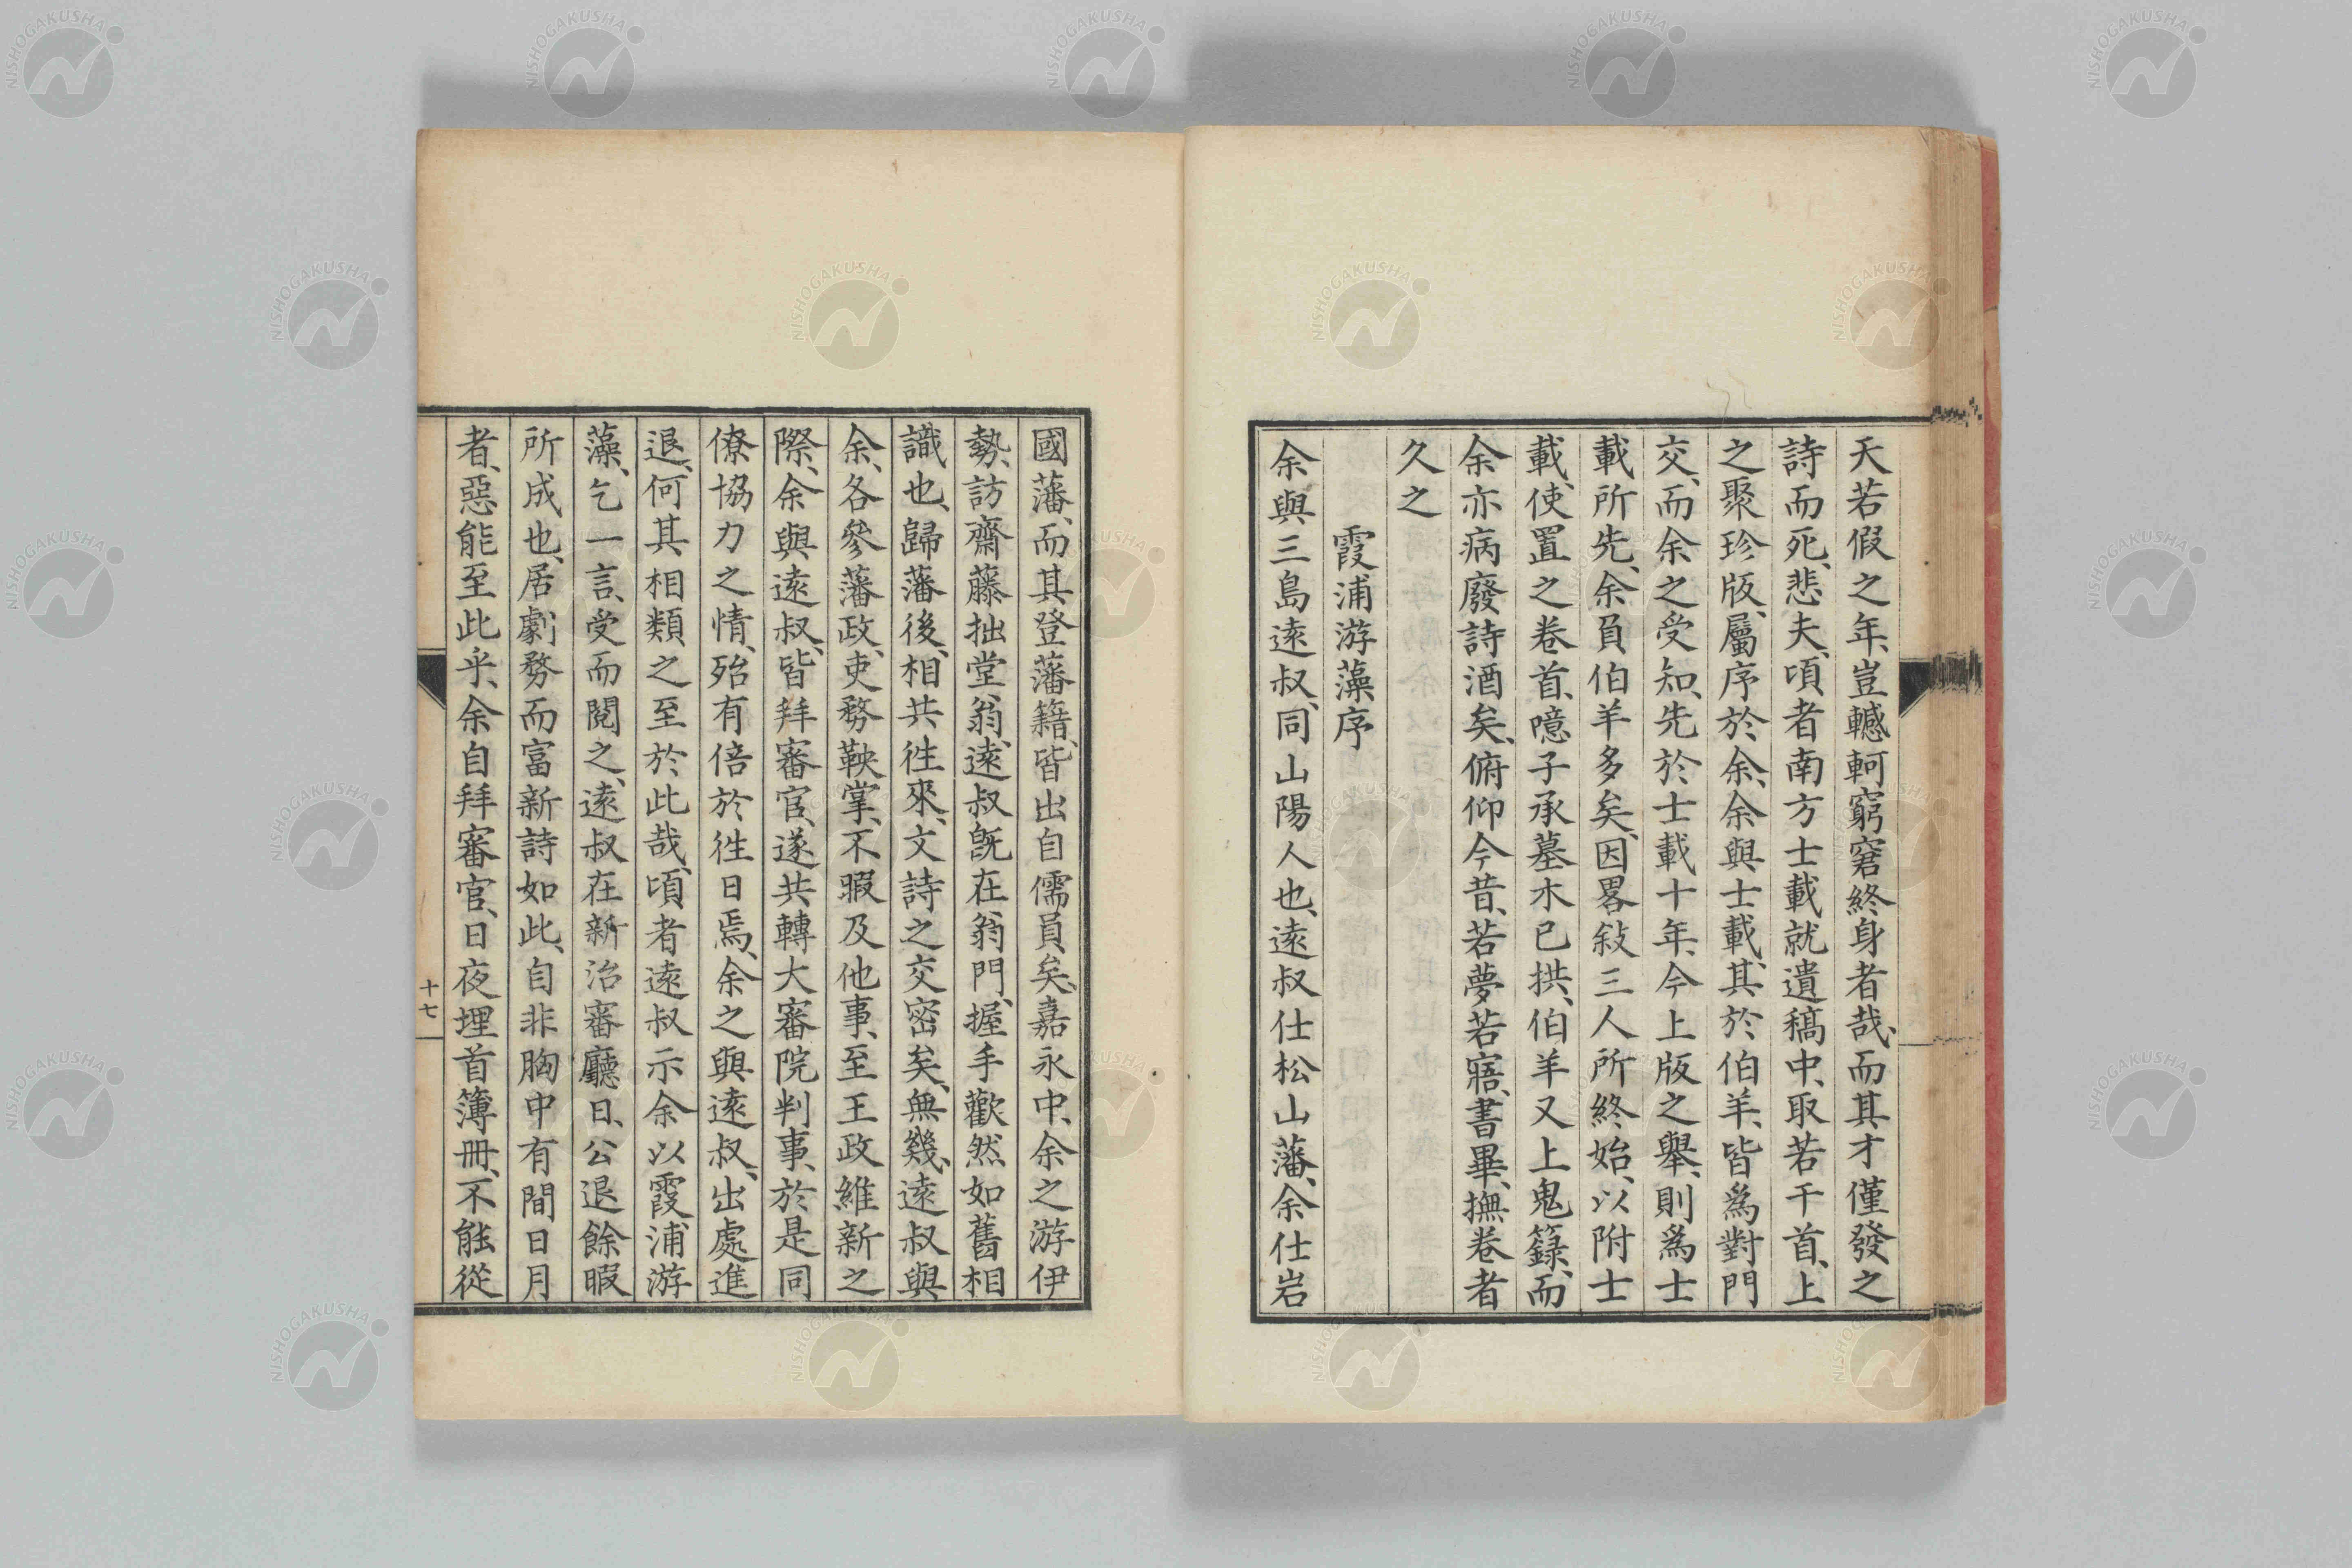 天若假之年、豈轗軻窮窘終身者哉、而其才僅發之
詩而死、悲夫、頃者南方士載就遺稿中、取若干首、上
之聚珍版、屬序於余、余與士載、其於伯羊、皆爲對門
交、而余之受知、先於士載十年、今上版之擧、則爲士
載所先、余負伯羊多矣、因畧敍三人所終始、以附士
載、使置之卷首、噫子承墓木已拱、伯羊又上鬼籙、而
余亦病廢詩酒矣、俯仰今昔、若夢若寤、書畢、撫卷者
久之
霞浦游藻序
余與三島遠叔、同山陽人也、遠叔仕松山藩、余仕岩
國藩、而其登藩籍、皆出自儒員矣、嘉永中、余之游伊
勢、訪齋藤拙堂翁、遠叔既在翁門、握手歡然如舊相
識也、歸藩後、相共往來、文詩之交密矣、無幾、遠叔與
余、各參藩政、吏務鞅掌、不暇及他事、至王政維新之
際、余與遠叔、皆拜審官、遂共轉大審院判事、於是同
僚協力之情、殆有倍於往日焉、余之與遠叔、出處進
退、何其相類之至於此哉、頃者遠叔示余以霞浦游
藻、乞一言、受而閱之、遠叔在新治審廳日、公退餘暇
所成也、居劇務而富新詩如此、自非胸中有間日月
者、惡能至此乎、余自拜審官、日夜埋首簿冊、不能從
十七
NISHOGAKUSHA